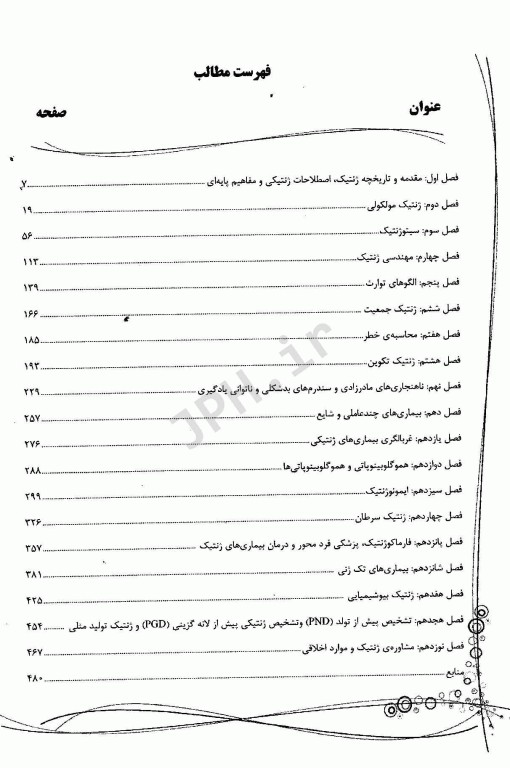 فهرست مطالب
عنوان صفحه
فصل اول: مقدمه و تاریخچه ژنتیک، اصطلاحات ژنتیکی و مفاهیم پایه‌ای ۷
فصل دوم: ژنتیک مولکولی ۱۹
فصل سوم: سیتوژنتیک ۵۶
فصل چهارم: مهندسی ژنتیک ۱۱۳
فصل پنجم: الگوهای توارث ۱۳۹
فصل ششم: ژنتیک جمعیت ۱۶۶
فصل هفتم: محاسبه‌ی خطر ۱۸۵
فصل هشتم: ژنتیک تکوین ۱۹۳
فصل نهم: ناهنجاری‌های مادرزادی و سندرم‌های بدشکلی و ناتوانی یادگیری ۲۲۹
فصل دهم: بیماری‌های چندعاملی و شایع ۲۵۷
فصل یازدهم: غربالگری بیماری‌های ژنتیکی ۲۷۶
فصل دوازدهم: هموگلوبینوپاتی و هموگلوبینوپاتی‌ها ۲۸۸
فصل سیزدهم: ایمونوژنتیک ۲۹۹
فصل چهاردهم: ژنتیک سرطان ۳۲۶
فصل پانزدهم: فارماکوژنتیک، پزشکی فرد محور و درمان بیماری‌های ژنتیک ۳۵۷
فصل شانزدهم: بیماری‌های تک ژنی ۳۸۱
فصل هفدهم: ژنتیک بیوشیمیایی ۴۲۵
فصل هجدهم: تشخیص پیش از تولد (PND) وتشخیص ژنتیکی پیش از لانه گزینی (PGD) و ژنتیک تولید مثلی ۴۵۴
فصل نوزدهم: مشاوره‌ی ژنتیک و موارد اخلاقی ۴۶۷
منابع ۴۸۰
JPH.ir